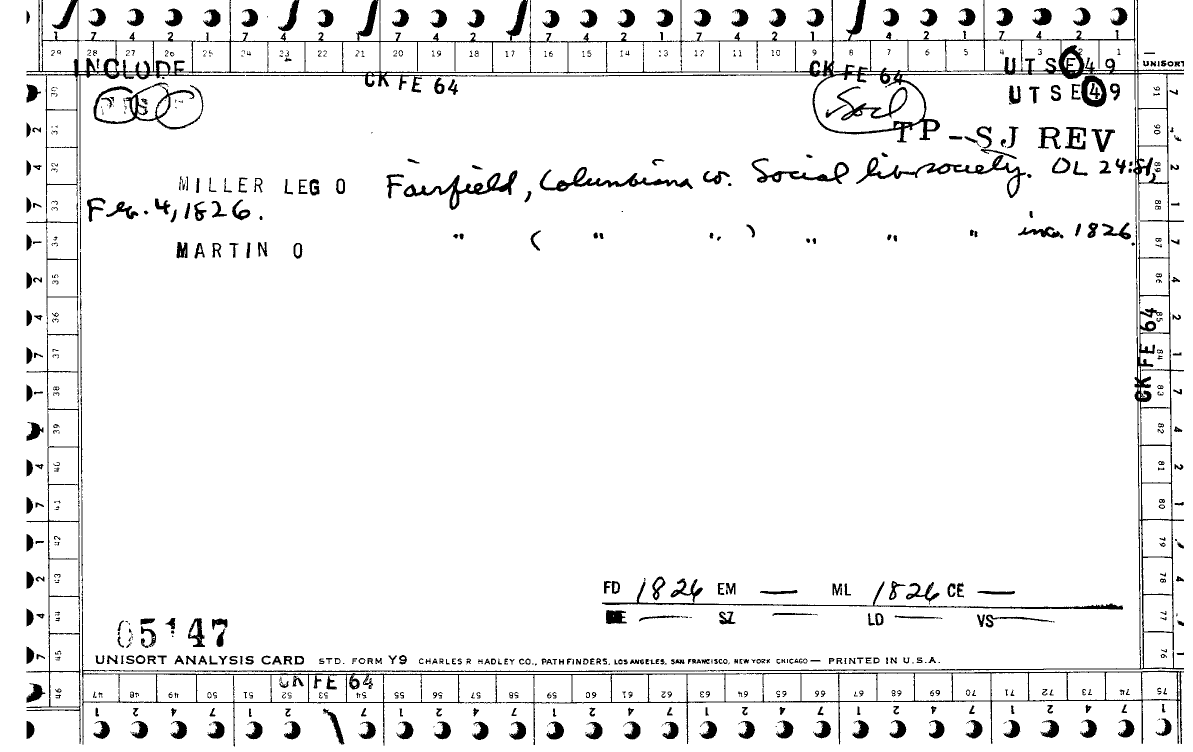 7 4 2 1 7 4 2 1 7 4 2 1 7 4 2 1 7 4 2 1 7 4 2 1 7 4 2 1
29 28 27 26 25 24 23 22 21 20 19 18 17 16 15 14 13 12 11 10 9 8 7 6 5 4 3 2 1
INCLUDE CK FE 64 CK FE 64 UTSE49 UNISORT
UTSE49
Socl
TP-SJ REV
MILLER LEG O Fairfield, Columbiana co. Social lib society. OL 24:81,
Feb. 4, 1826.
MARTIN O " ( " " ) " " " inc. 1826.
CK FE 64
FD 1826 EM — ML 1826 CE —
SZ — LD — VS —
05147
UNISORT ANALYSIS CARD STD. FORM Y9 CHARLES R HADLEY CO., PATHFINDERS, LOS ANGELES, SAN FRANCISCO, NEW YORK CHICAGO — PRINTED IN U.S.A.
CK FE 64
47 48 49 50 51 52 53 54 55 56 57 58 59 60 61 62 63 64 65 66 67 68 69 70 71 72 73 74 75